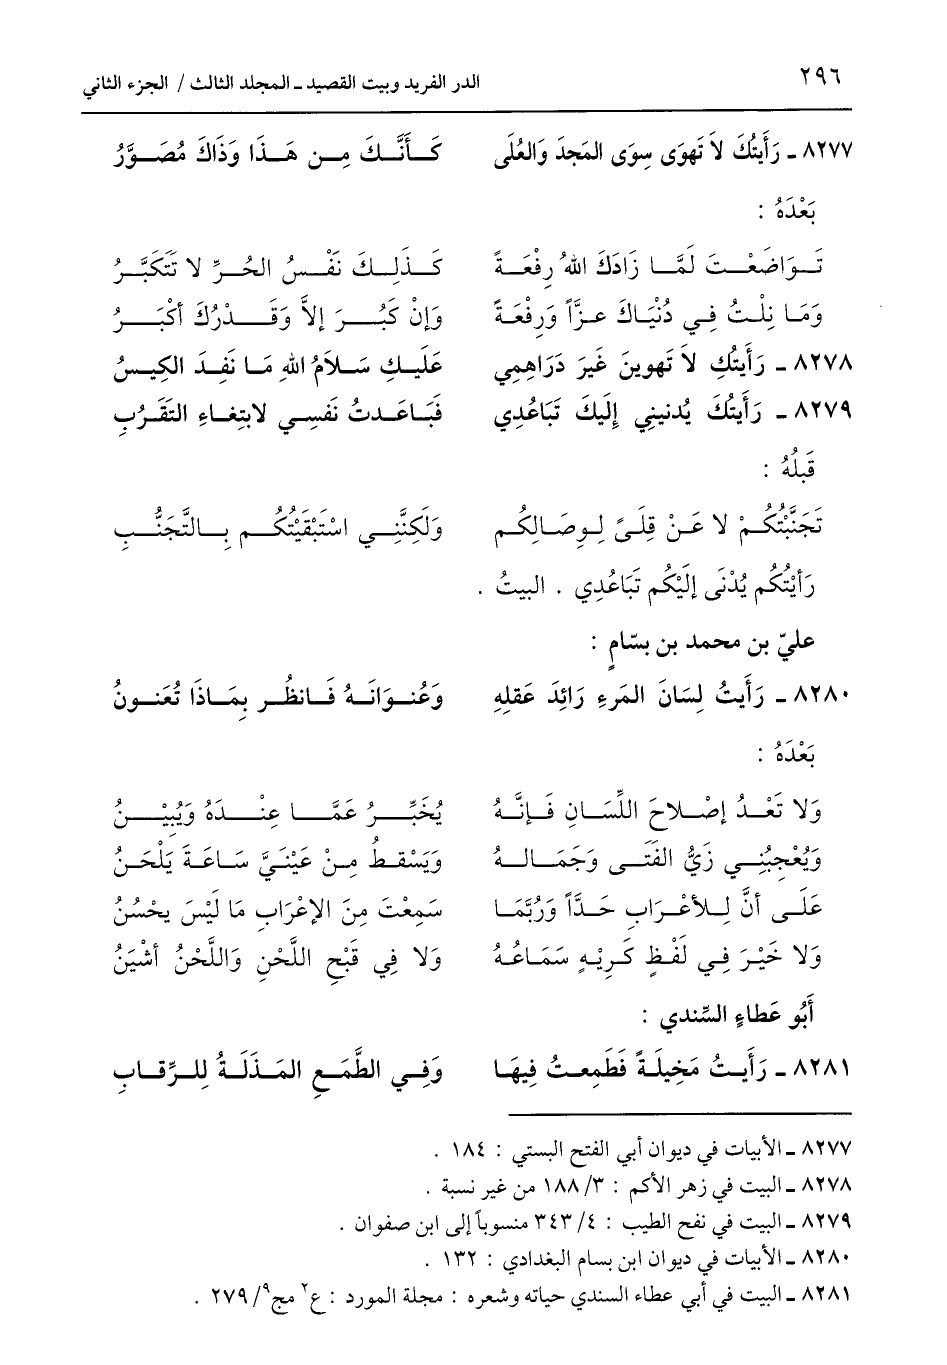 ٢٩٦ الدر الفريد وبيت القصيد ـ المجلد الثالث / الجزء الثاني
٨٢٧٧ ـ رَأَيتُكَ لاَ تَهوَى سِوَى المَجدَ وَالعُلَى كَأَنَّكَ مِن هَذَا وَذَاكَ مُصَوَّرُ
بَعْدَهُ :
تَوَاضَعْتَ لَمَّا زَادَكَ اللهُ رِفْعَةً كَذَلِكَ نَفْسُ الحُرِّ لا تَتَكَبَّرُ
وَمَا نِلْتُ فِي دُنْيَاكَ عزَّاً وَرِفْعَةً وَإنْ كَبُرَ إلاَّ وَقَدْرُكَ أكْبَرُ
٨٢٧٨ ـ رَأَيتُكِ لاَ تَهوينَ غَيرَ دَرَاهِمِي عَلَيكِ سَلاَمُ اللهِ مَا نَفِدَ الكِيسُ
٨٢٧٩ ـ رَأَيتُكَ يُدنيني إِلَيكَ تَبَاعُدِي فَبَاعَدتُ نَفسِي لابتِغَاءِ التَقَرُبِ
قَبلُهُ :
تَجَنَّبْتُكُمْ لا عَنْ قِلَىً لِوِصَالِكُم وَلَكِنَّنِي اسْتَبْقَيْتُكُم بِالتَّجَنُّبِ
رَأيْتُكُم يُدْنَى إلَيْكُم تَبَاعُدِي . البيتُ .
عليّ بن محمد بن بسّامٍ :
٨٢٨٠ ـ رَأَيتُ لِسَانَ المَرءِ رَائِدَ عَقلِهِ وَعُنوَانَهُ فَانظُر بِمَاذَا تُعَنونُ
بَعْدَهُ :
وَلا تَعْدُ إصْلاحَ اللِّسَانِ فَإنَّهُ يُخَبِّرُ عَمَّا عِنْدَهُ وَيُبِيْنُ
وَيُعْجِبُنِي زَيُّ الفَتَى وَجَمَالهُ وَيَسْقطُ مِنْ عَيْنَيَّ سَاعَةَ يَلْحَنُ
عَلَى أنَّ لِلأعْرَابِ حَدَّاً وَرُبَّمَا سَمِعْتَ مِنَ الإعْرَابِ مَا لَيْسَ يحْسُنُ
وَلا خَيْرَ فِي لَفْظٍ كَرِيْهٍ سَمَاعُهُ وَلا فِي قَبْحِ اللَّحْنِ وَاللَّحْنُ أشْيَنُ
أَبُو عَطاءٍ السِّندي :
٨٢٨١ ـ رَأَيتُ مَخِيلَةً فَطَمِعتُ فِيهَا وَفِي الطَّمَعِ المَذَلَةُ لِلرِّقَابِ
٨٢٧٧ ـ الأبيات في ديوان أبي الفتح البستي : ١٨٤ .
٨٢٧٨ ـ البيت في زهر الأكم : ٣/ ١٨٨ من غير نسبة .
٨٢٧٩ ـ البيت في نفح الطيب : ٤/ ٣٤٣ منسوباً إلى ابن صفوان .
٨٢٨٠ ـ الأبيات في ديوان ابن بسام البغدادي : ١٣٢ .
٨٢٨١ ـ البيت في أبي عطاء السندي حياته وشعره : مجلة المورد : ع٢ مج٩/ ٢٧٩ .